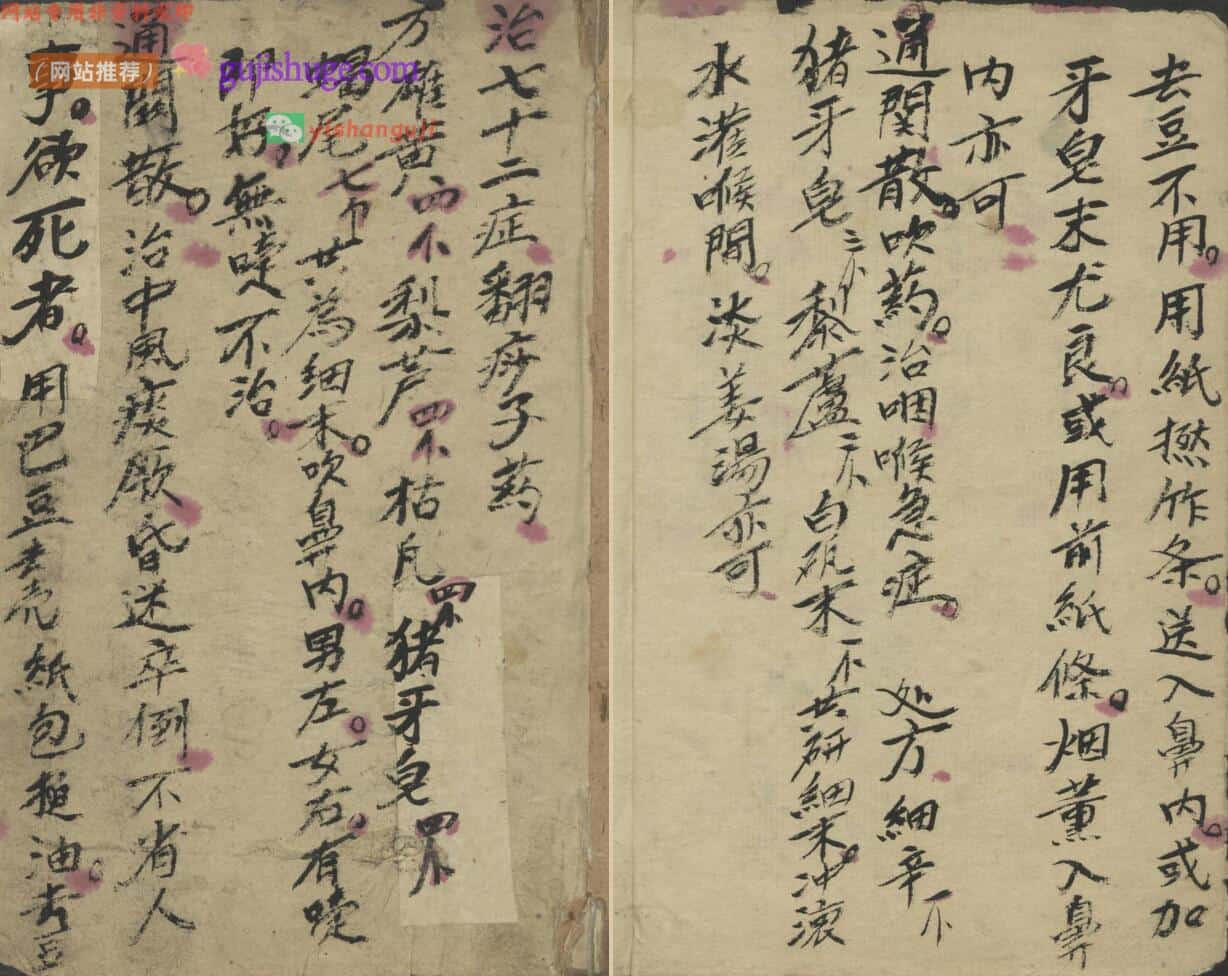 治七十二症翻痧子药
方雄黄四 梨芦四 枯凡四 猪牙皂四
蝎尾七 共為细末。吹鼻内。男左。女右。有嚏
即好。無嚏不治。
通關散。治中風痰厥昏迷卒倒不省人
事。欲死者。用巴豆去壳紙包搥油去豆
去豆不用。用紙撚作条。送入鼻内。或加
牙皂末尤良。或用前紙條。烟薰入鼻
内亦可
通関散。吹药。治咽喉急症。 处方 细辛一
猪牙皂三 黎蘆二 白矾末一 共研細末。冲滚
水灌喉間。淡姜湯亦可
(网站推荐)
gujishuge.com
yishanguji